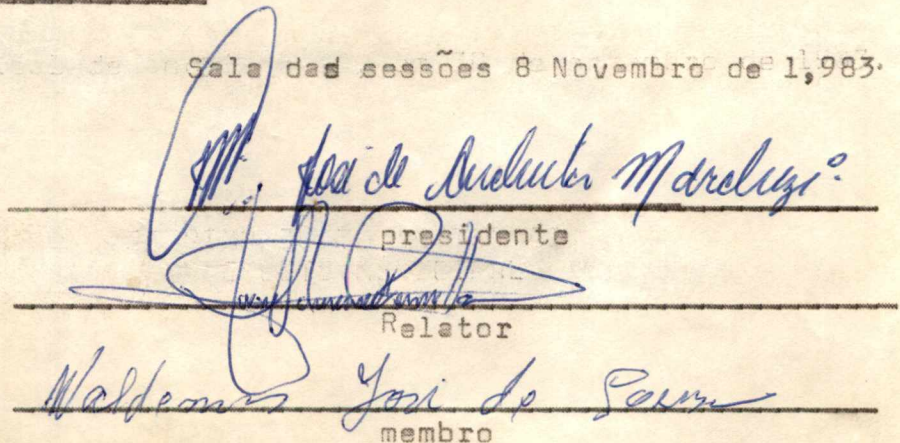 Sala das sessões 8 Novembro de 1,983.
José de Marcluzi
presidente
Relator
Waldemar José de Souza
membro